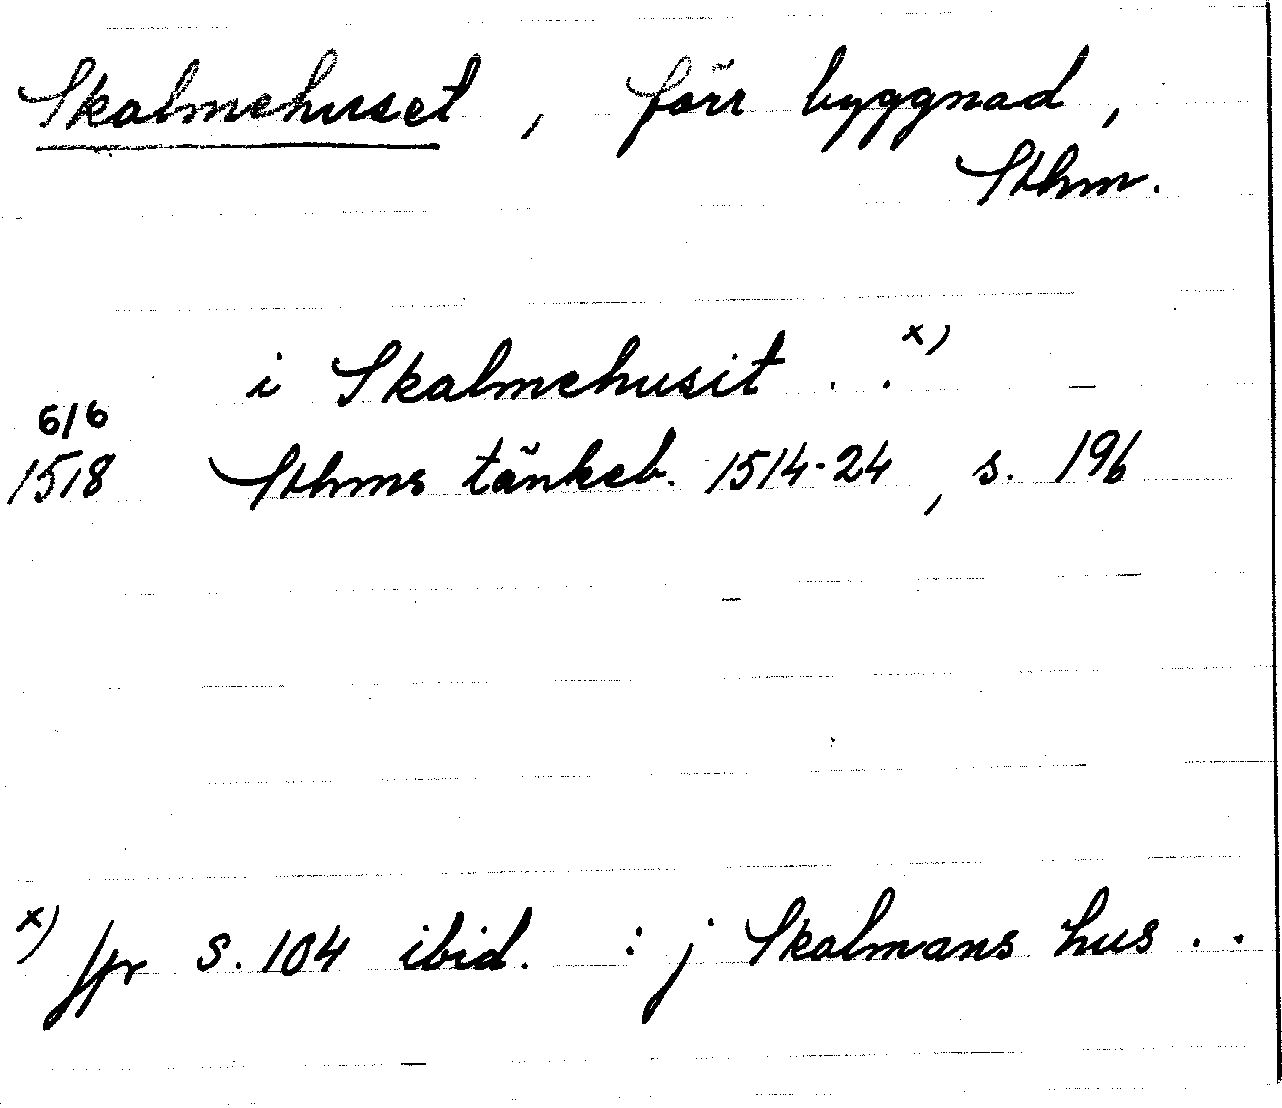 Skalmehuset, förr byggnad,
Sthm.
i Skalmehusit . . x)
6/6
1518 Sthms tänkeb. 1514-24, s. 196
x) Jfr s. 104 ibid. : j Skalmans hus . .